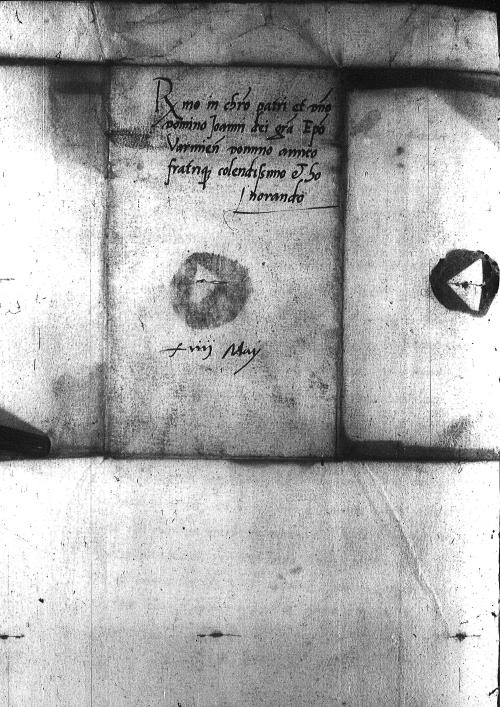 Rmo in chro patri et dno
domino Joanni dei gra Epo
Varmien domino amico
fratriq colendissimo et ho
norando
xiiij Maij